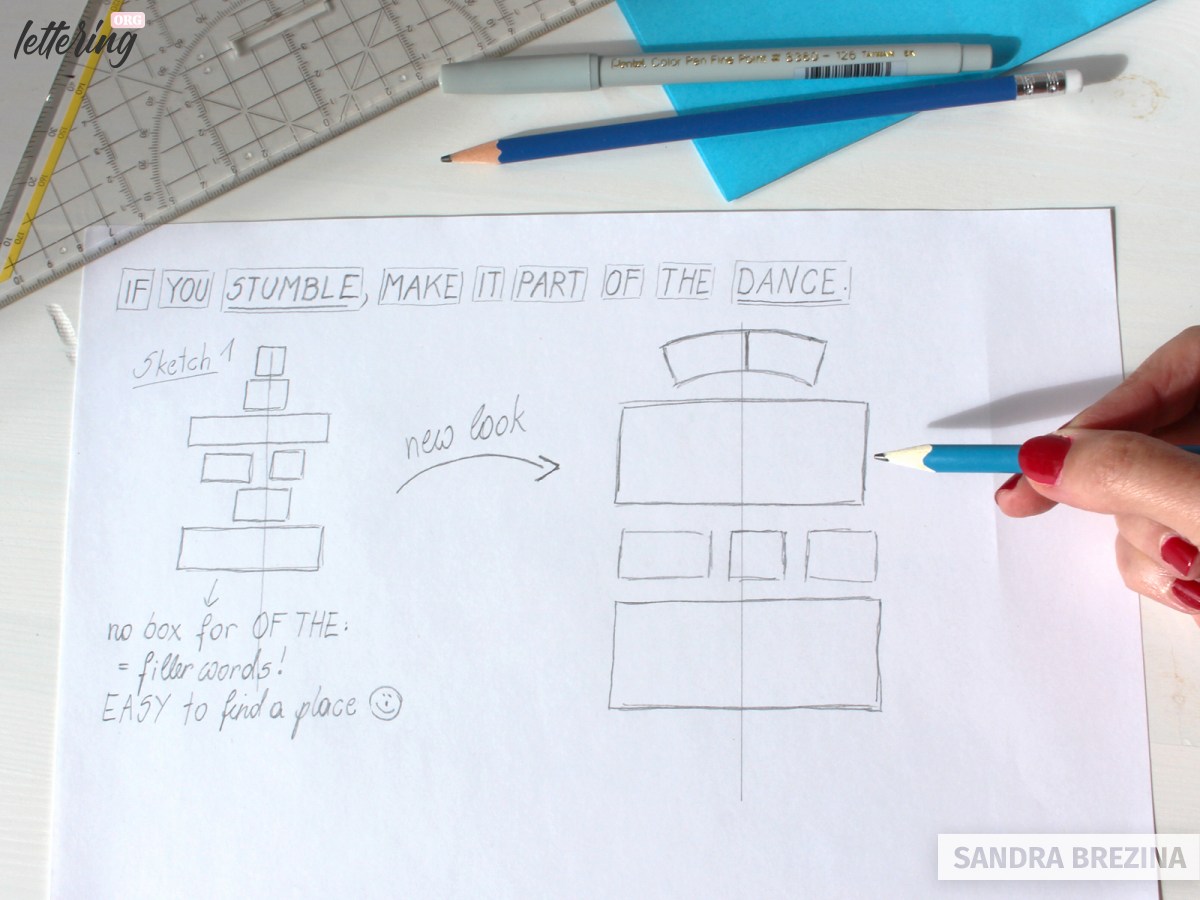 lettering
ORG
Pentel Color Pen Fine Point
IF YOU STUMBLE, MAKE IT PART OF THE DANCE.
Sketch 1
new look
no box for OF THE:
= filler words!
EASY to find a place
SANDRA BREZINA